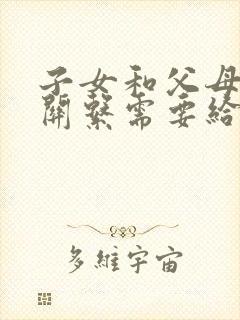 子女和父母
關繫需要給
多維宇宙